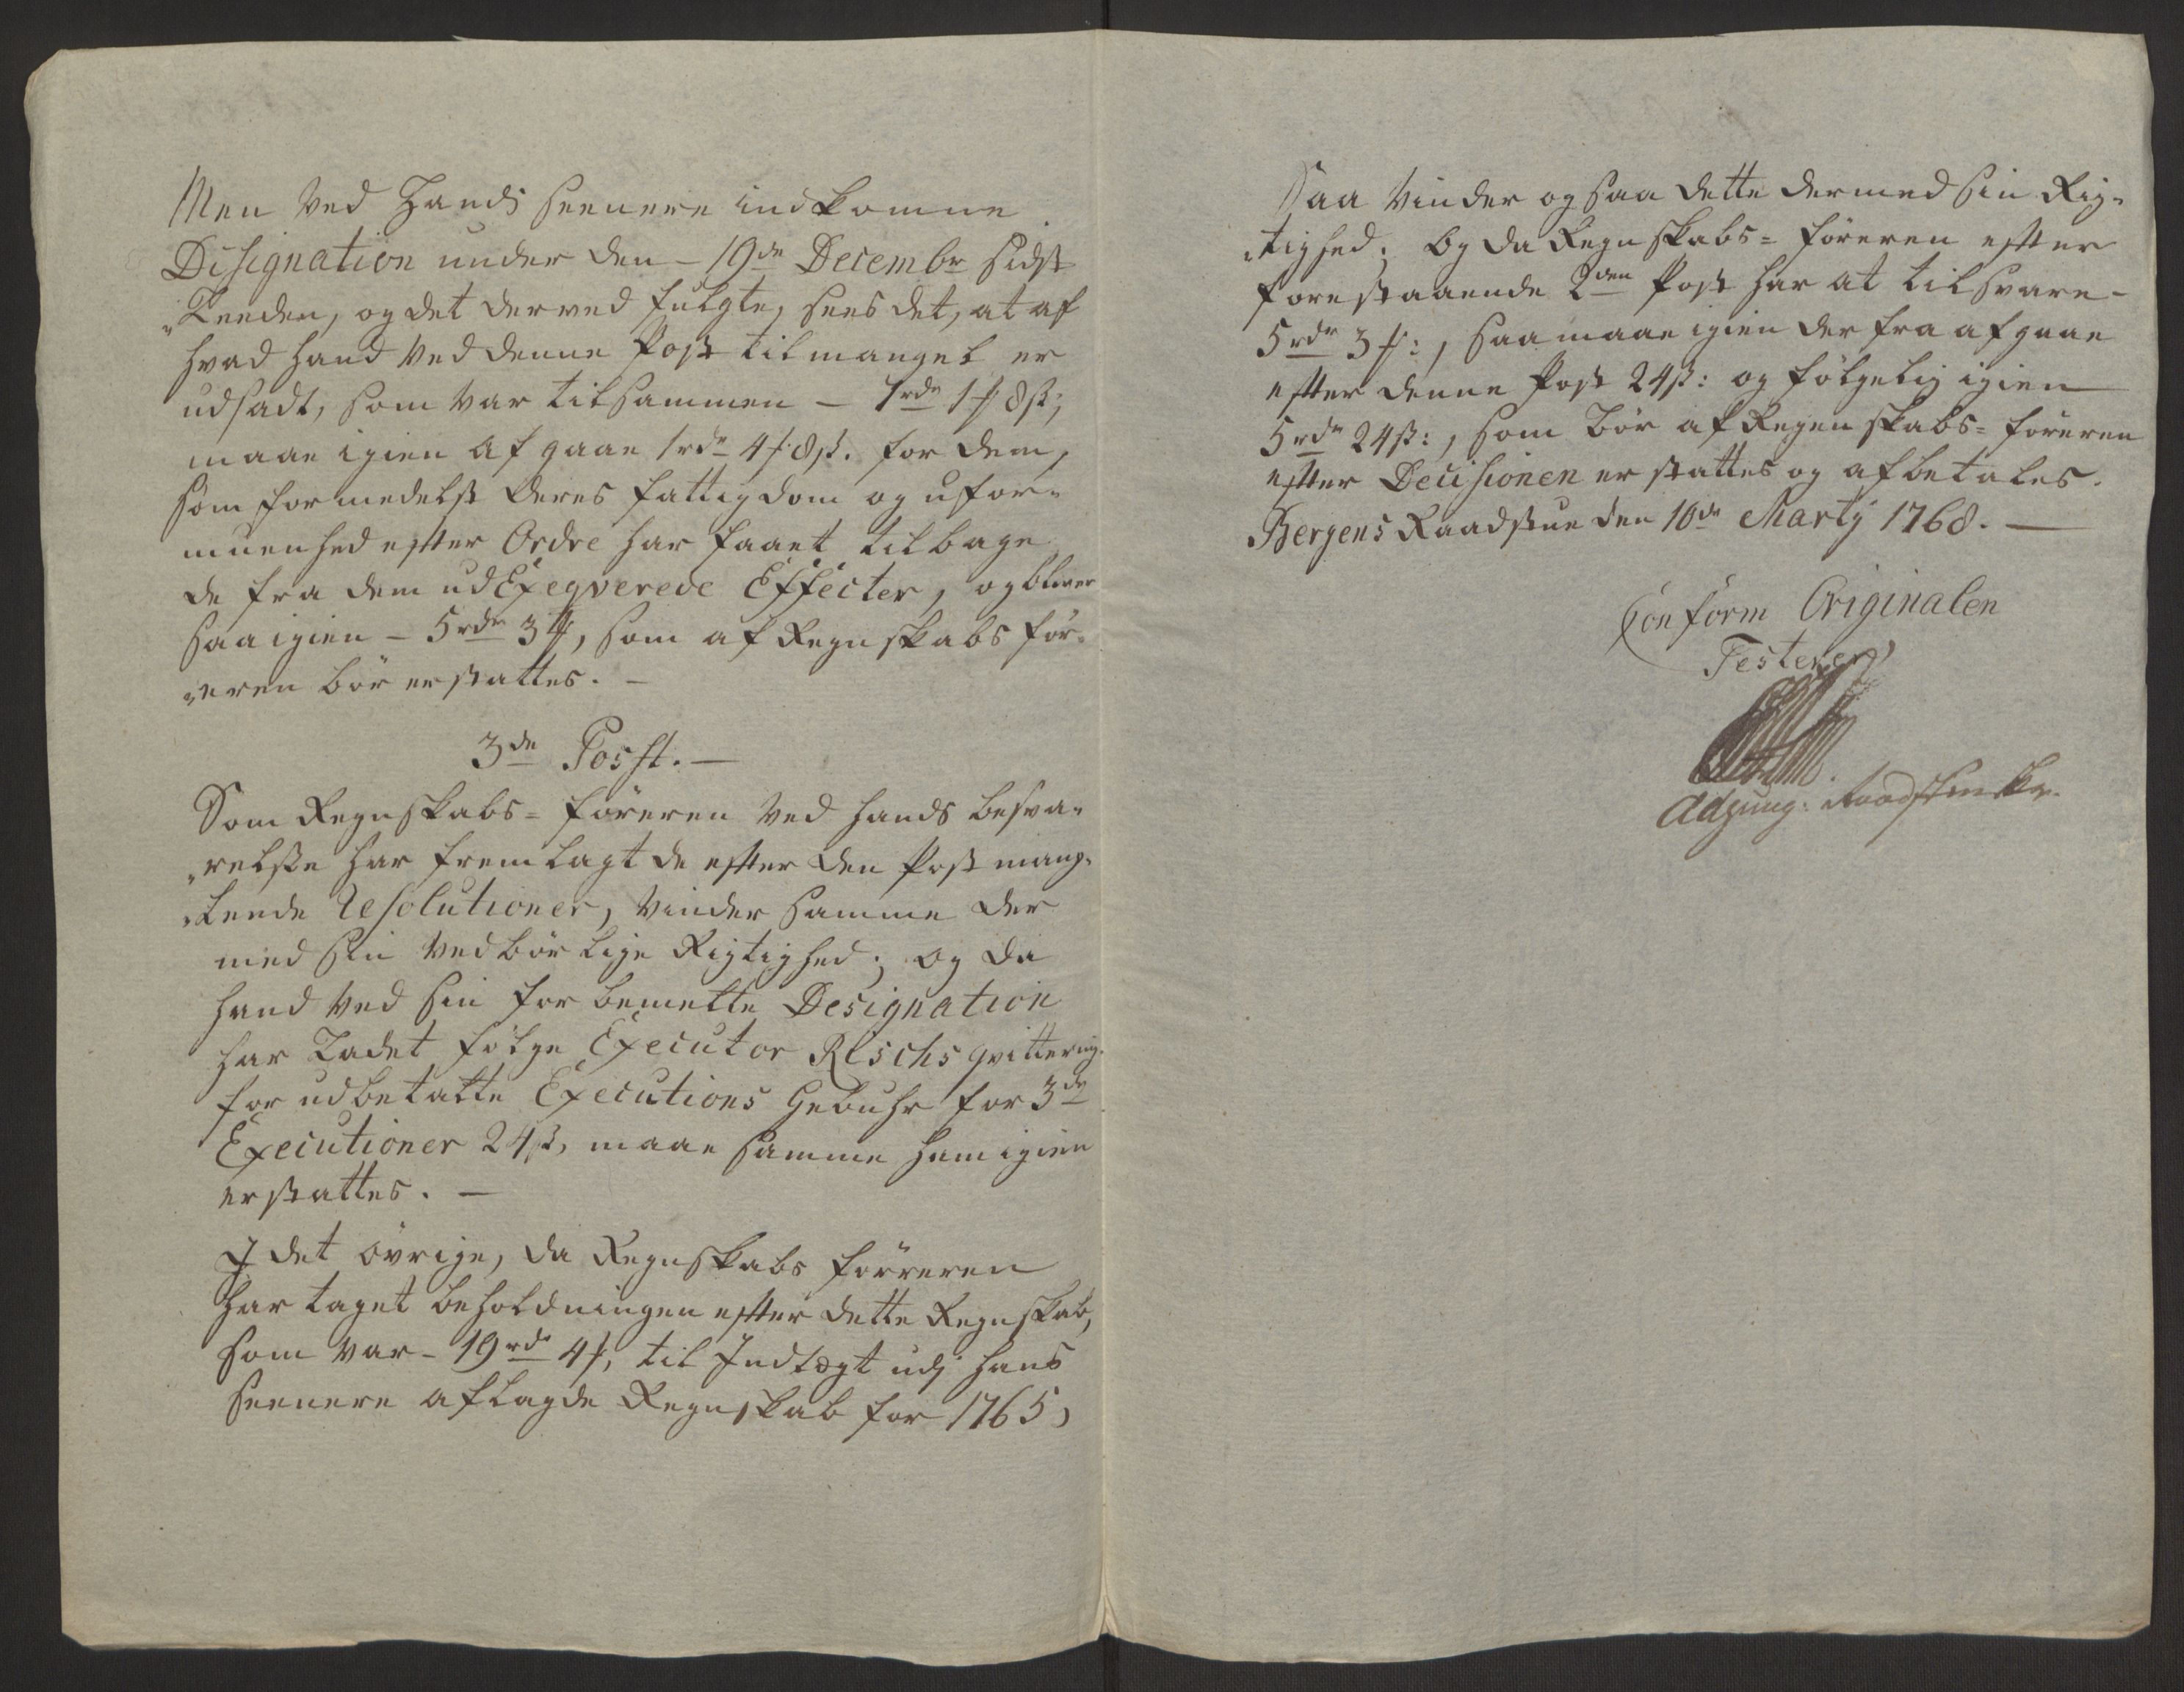 Men ved Hands seenere indkomne
Designation under den - 19de Decembr sidst
"Leeden, og det derved fulgte, sees det, at af
hvad hand ved denne Post til mangel er
udsadt, som var tilsammen - 7rdr 1 ℔ 8ß;
maae igien afgaae 1rdr 4 ℔ 8ß. for dem,
som formedelst deres fattigdom og ufor-
muenhed efter Ordre har faaet tilbage
de fra dem udExeqverede Effecter, og bliver
saa igien - 5rdr 3 ℔, som af Regnskabsför-
"eren bör erstattes. -
3de Post. -
Som Regnskabs-föreren ved hands besva-
"relse har fremlagt de efter den Post mang-
"lende Resolutioner, vinder samme der
med sin vedbörlige Rigtighed; og da
hand ved sin forbemelte Designation
har Ladet fölge Executor Rischs qvittering
for udbetalte Executions Gebuhr for 3de
Executioner 24ß, maae samme ham igien
erstattes. -
I det övrige, da Regnskabs förreren
har taget beholdningen efter dette Regnskab,
som var - 19rdr 4 ℔, til Indtægt udj hans
seenere aflagde Regnskab for 1765,
Saa vinder ogsaa dette dermed sin Rig-
"tighed; Og da Regnskabs-föreren efter
forestaaende 2den Post har at tilsvare -
5rdr 3 ℔:, saa maae igien der fra afgaae
efter denne Post 24ß: og fölgelig igien
5rdr 24ß:, som bör af Regenskabs-föreren
efter Decisionen erstattes og afbetales.
Bergens Raadstue den 10de Martij 1768. -
Conform Originalen
Testerer
Adjung: Raadstueskr.